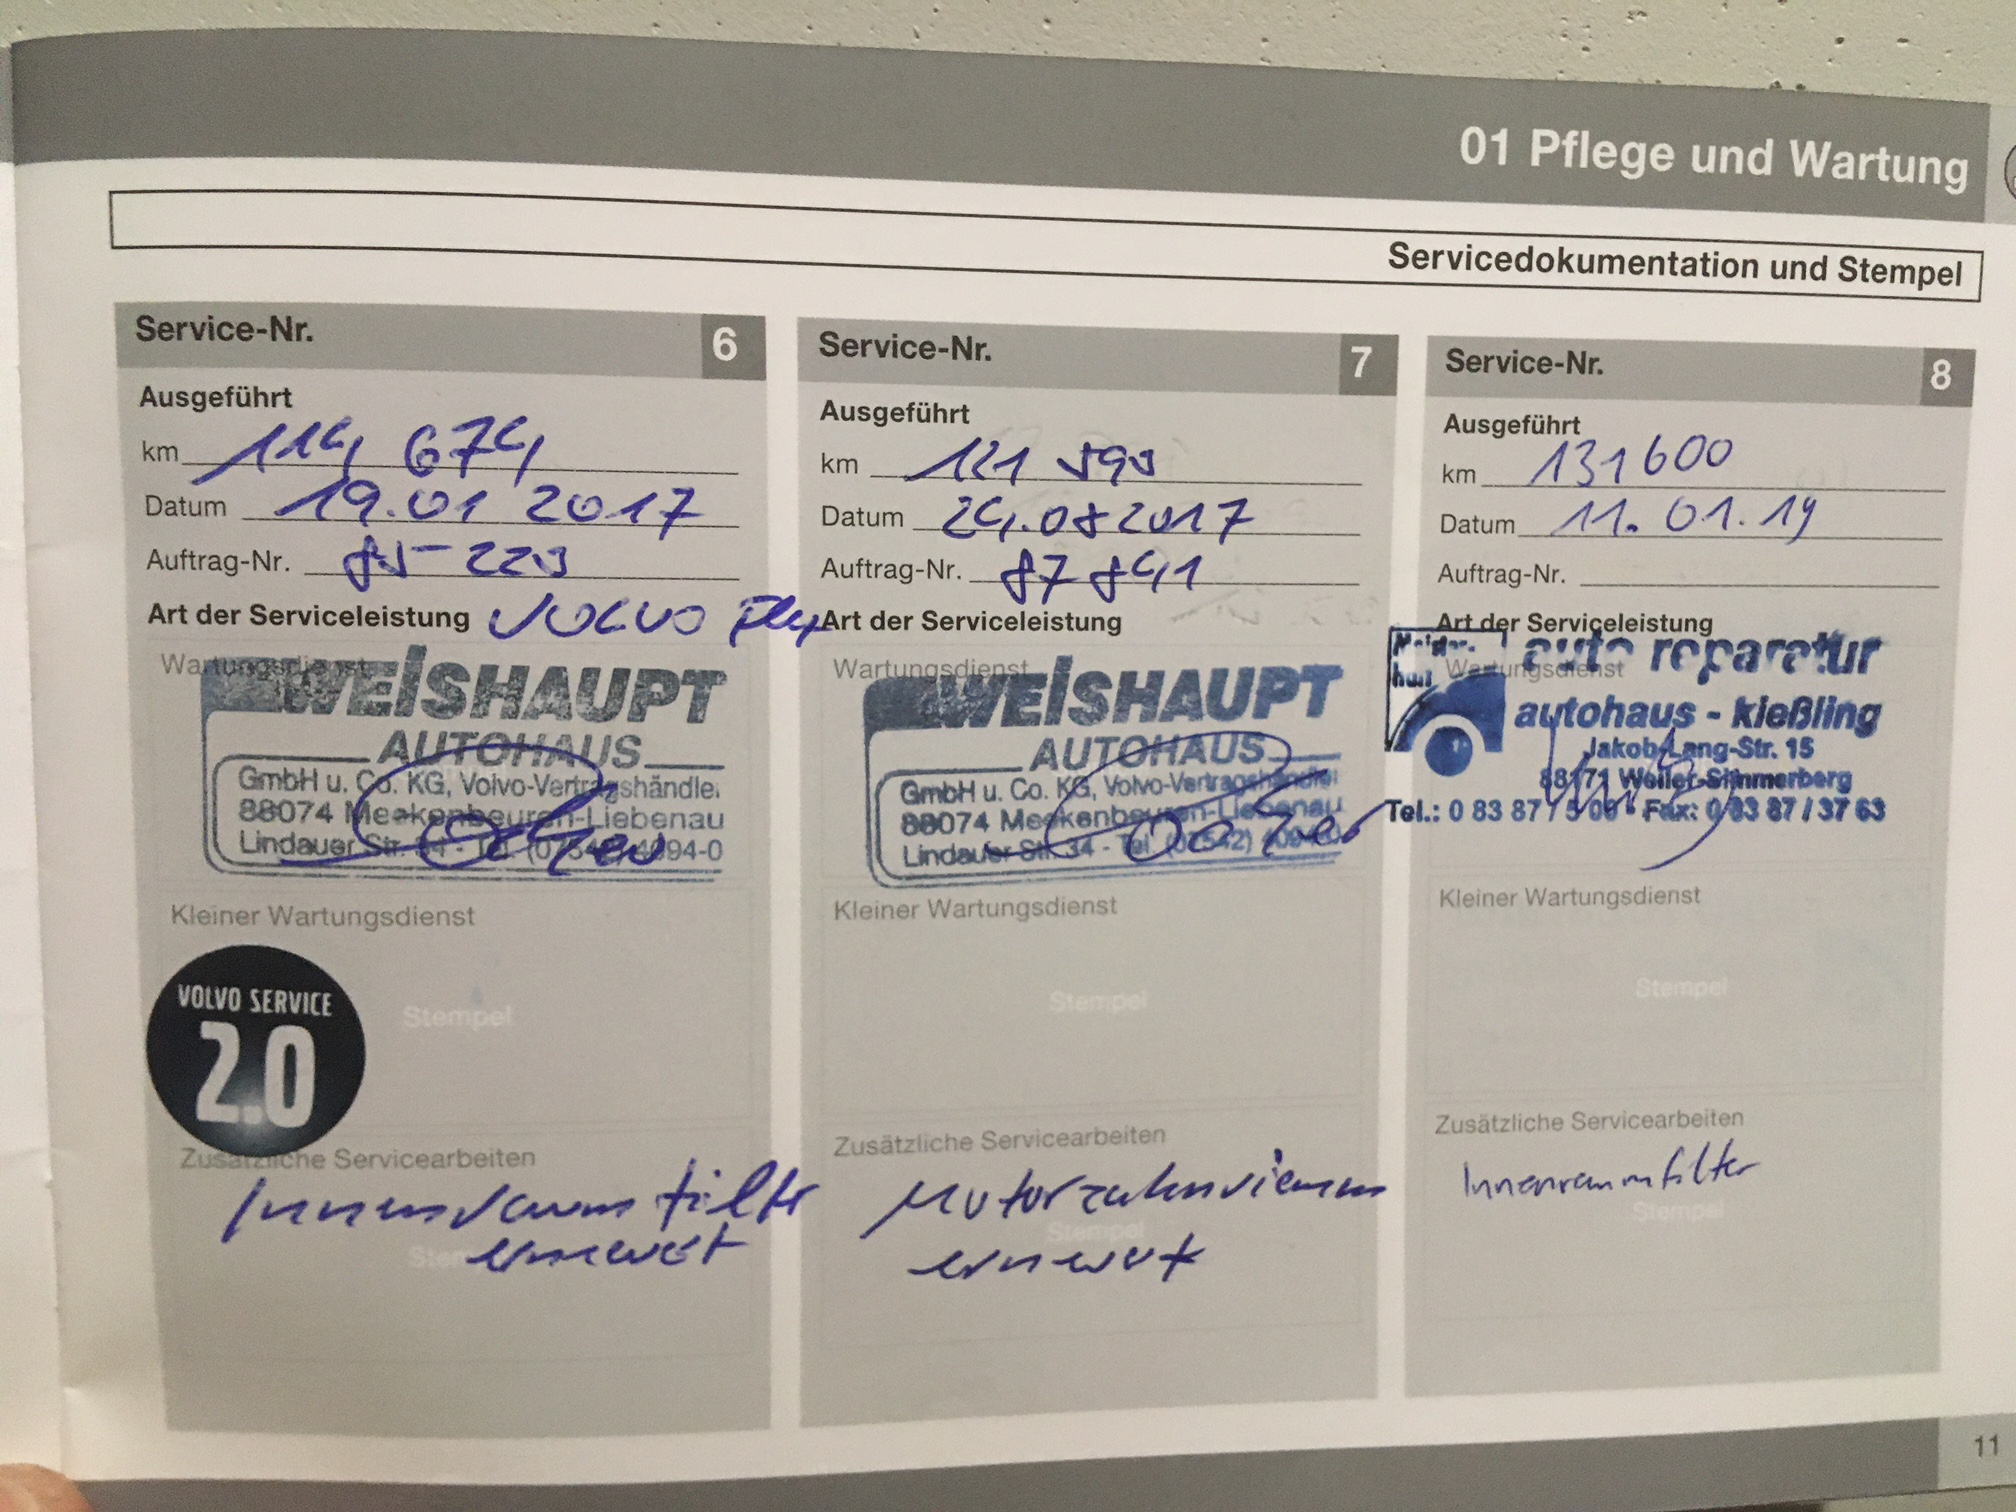 01 Pflege und Wartung
Servicedokumentation und Stempel
Service-Nr. 6
Ausgeführt
km 114 674
Datum 19.01 2017
Auftrag-Nr. 85-225
Art der Serviceleistung VOLVO
Wartungsdienst
WEISHAUPT
AUTOHAUS
GmbH u. Co. KG, Volvo-Vertragshändler
88074 Meckenbeuren-Liebenau
Lindauer Str. 34 - Tel. (07542) 4094-0
Kleiner Wartungsdienst
VOLVO SERVICE
2.0
Stempel
Zusätzliche Servicearbeiten
Innenraumfilter
Stempel
erneuert
Service-Nr. 7
Ausgeführt
km 121 595
Datum 24.08 2017
Auftrag-Nr. 87 841
Art der Serviceleistung
Wartungsdienst
WEISHAUPT
AUTOHAUS
GmbH u. Co. KG, Volvo-Vertragshändler
88074 Meckenbeuren-Liebenau
Lindauer Str. 34 - Tel. (07542) 4094-0
Kleiner Wartungsdienst
Stempel
Zusätzliche Servicearbeiten
Motorzahnriemen
Stempel
erneuert
Service-Nr. 8
Ausgeführt
km 131600
Datum 11.01.19
Auftrag-Nr.
Art der Serviceleistung
Wartungsdienst
auto reparatur
autohaus - kießling
Jakob-Lang-Str. 15
88171 Weiler-Simmerberg
Tel.: 0 83 87 / Fax: 0 83 87 / 37 63
Kleiner Wartungsdienst
Stempel
Zusätzliche Servicearbeiten
Innenraumfilter
Stempel
11